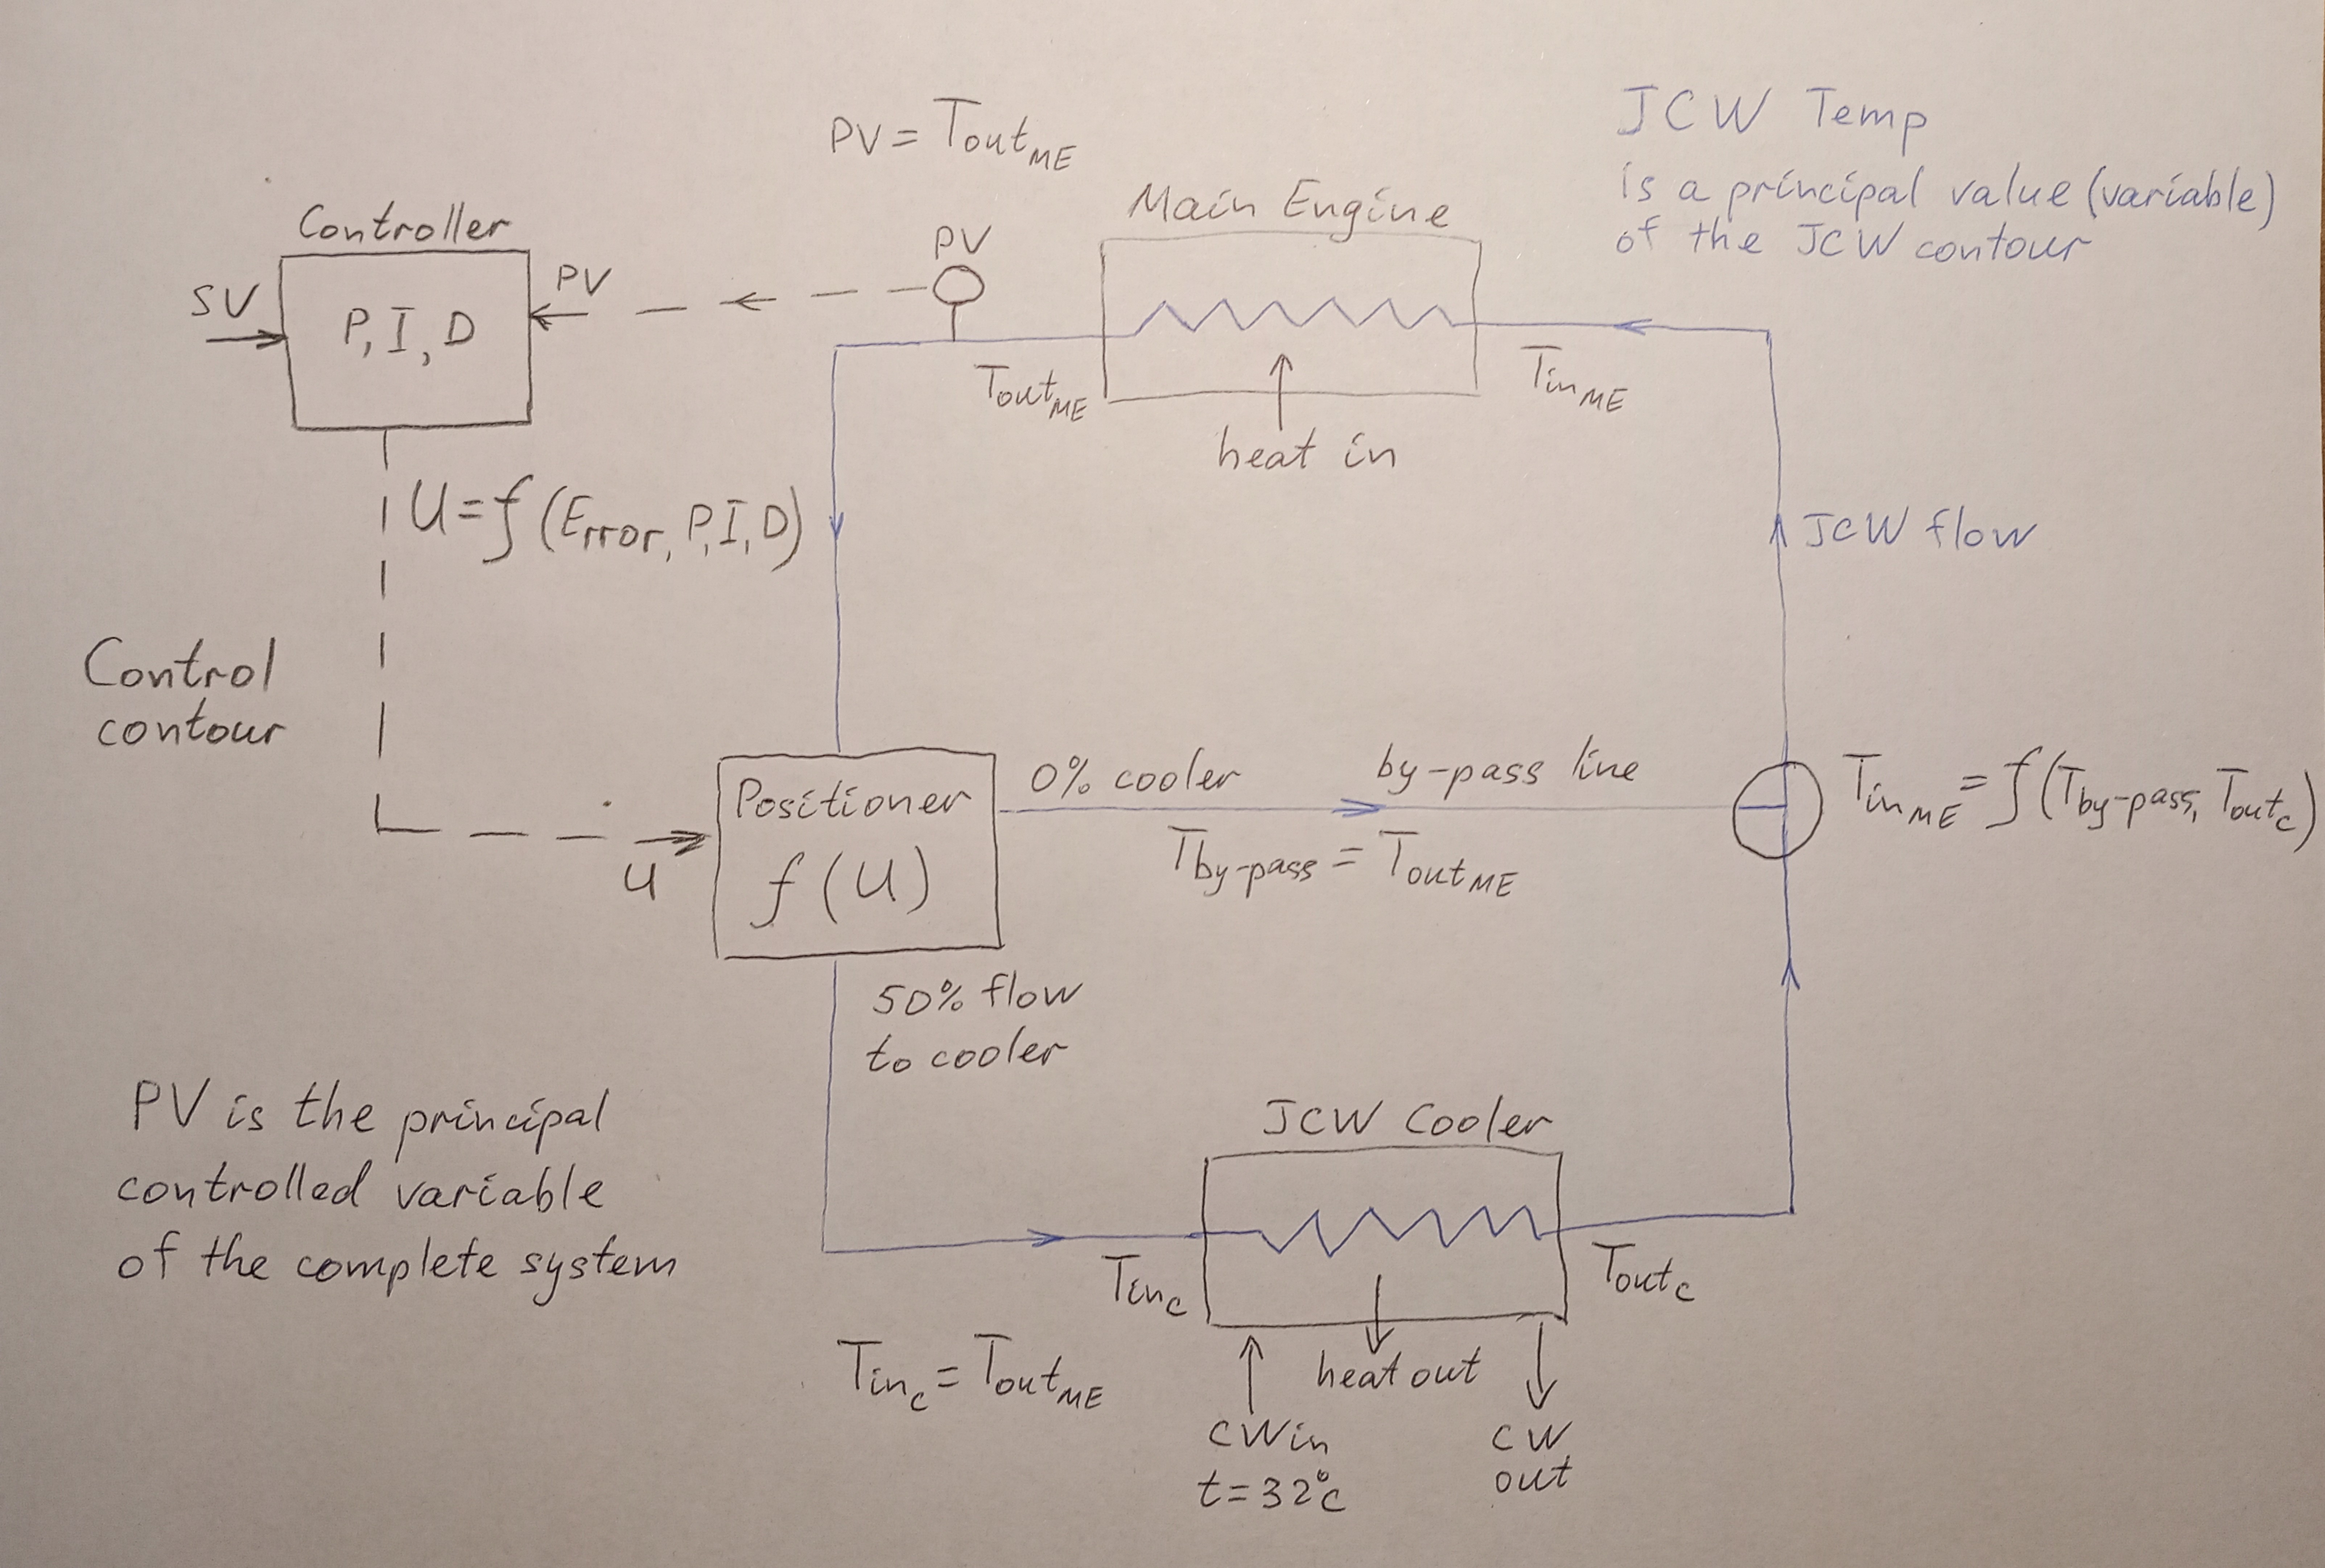 PV = Tout ME
JCW Temp
is a principal value (variable)
of the JCW contour
Controller
SV
P, I, D
PV
PV
Main Engine
Tout ME
Tin ME
heat in
U = f (Error, P, I, D)
JCW flow
Control
contour
U
Positioner
f (U)
0% cooler
by-pass line
Tby-pass = Tout ME
Tin ME = f (Tby-pass, Tout c)
50% flow
to cooler
PV is the principal
controlled variable
of the complete system
JCW Cooler
Tin c
Tout c
Tin c = Tout ME
heat out
CW in
t = 32°c
CW
out